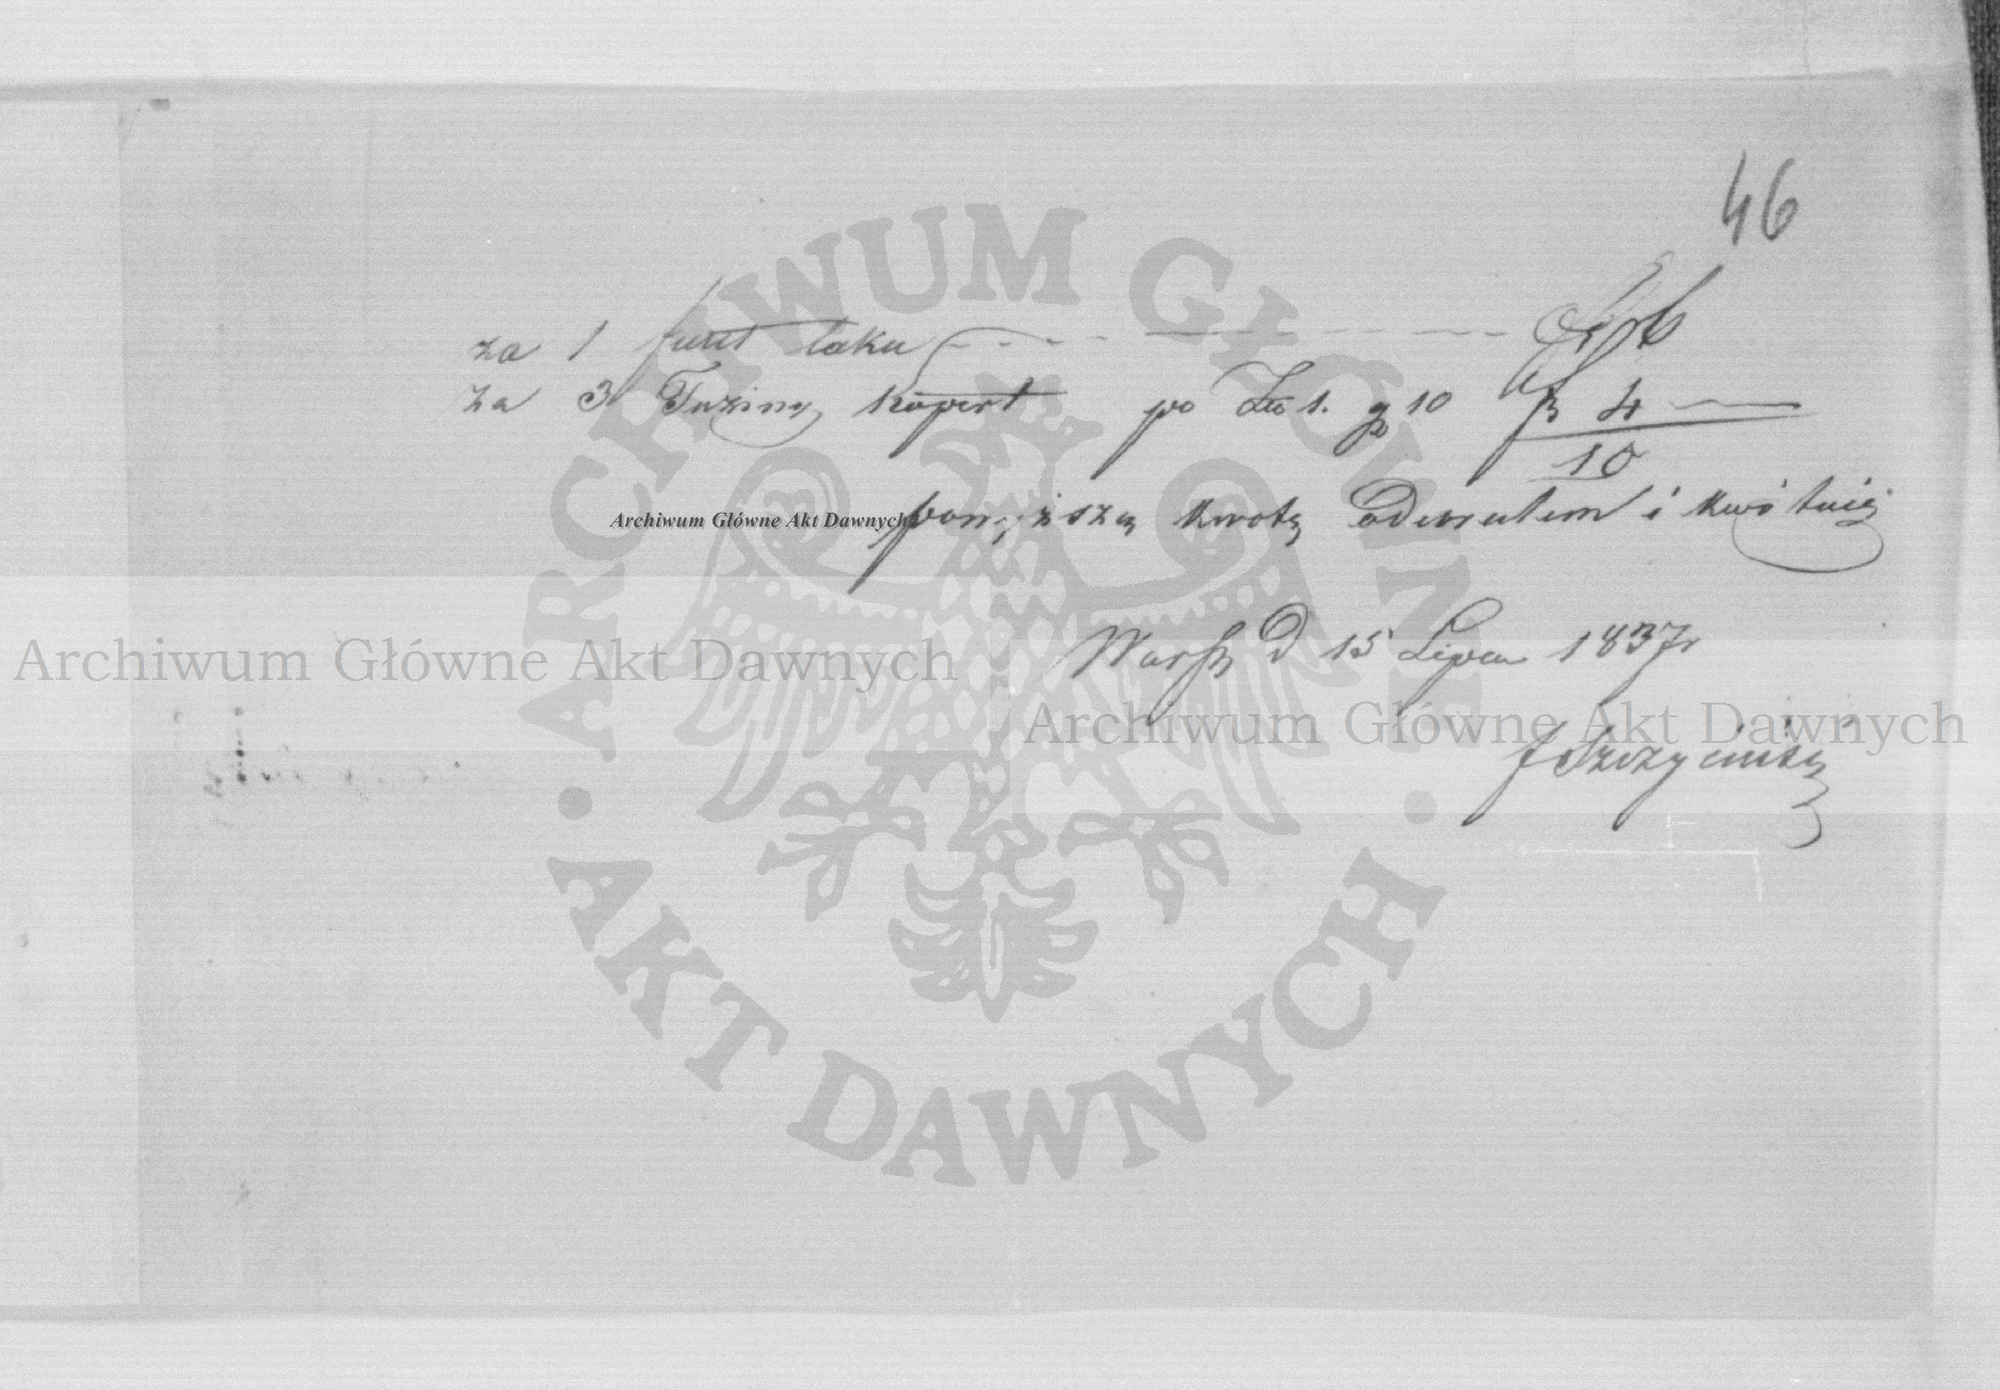 46
za 1 funt laku - - - - - - - - - 6
za 3 Tuziny kopert po Zł 1. gr 10 4 —
10
powyższą kwotę odebrałem i kwituię
Warsz D 15 Lipca 1837r
ARCHIWUM GŁÓWNE AKT DAWNYCH
Archiwum Główne Akt Dawnych
Archiwum Główne Akt Dawnych
Archiwum Główne Akt Dawnych